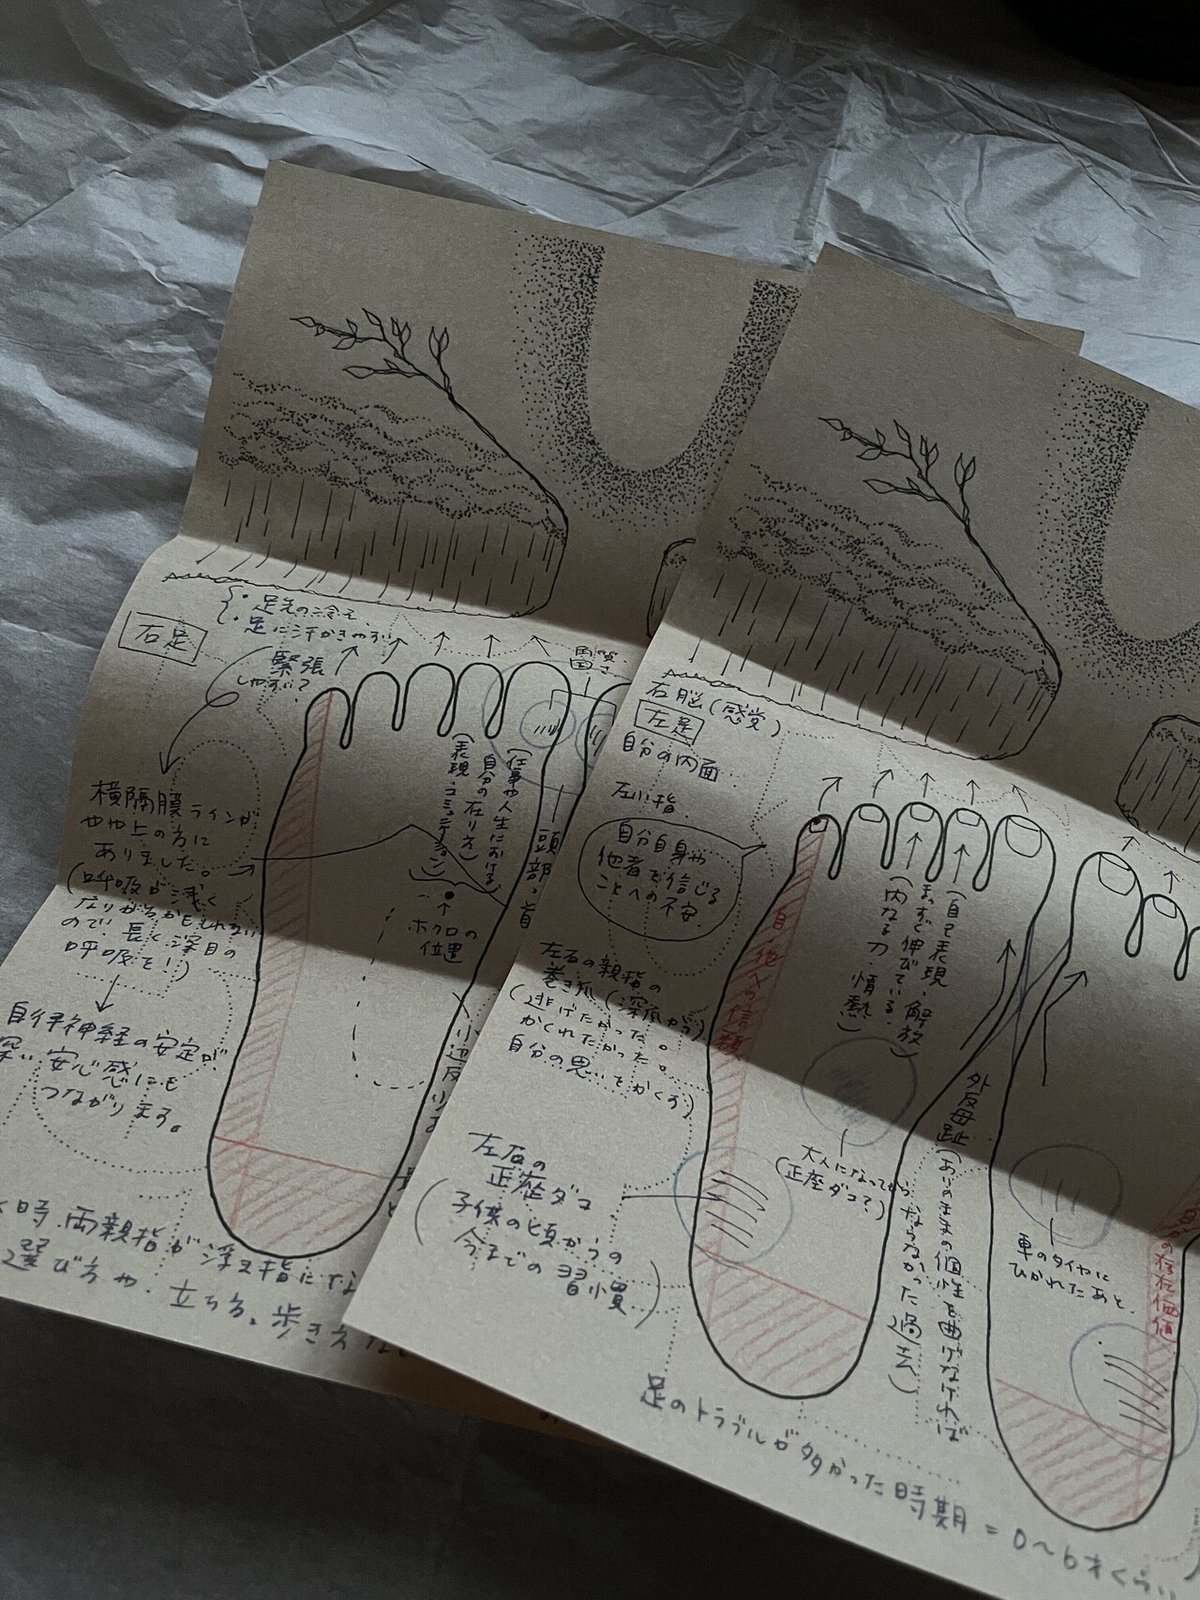 右足
・足先の冷え
・足に汗かきやす
緊張
しやすい?
角質
固さ
横隔膜ラインが
やや上の方に
ありました。
(呼吸が浅く
なりがちかもしれない
ので、長く深目の
呼吸を!)
自律神経の安定が、
深い安心感にも
つながります。
(仕事や人生における
自分の在り方)
(表現・コミュニケーション)
頭部、首
ホクロの
位置
小辺反り
時、両親指が浮き指にな
選び方や、立ち方、歩き方
右脳(感覚)
左足
自分の内面
左小指
自分自身や
他者を信じる
ことへの不安
左右の親指の
巻き爪(深爪から)
(逃げたかった。
かくれたかった。
自分の思いをかくす)
自・他への信頼
(自己表現、解放)
まっすぐ伸びている。
(内なる力、情熱)
外反母趾(ありのままの個性を曲げなければ
ならなかった過去)
大人になってから
(正座ダコ?)
左右の
正座ダコ
(子供の頃からの
今までの習慣)
車のタイヤに
ひかれたあと。
の存在価値
足のトラブルが多かった時期=0〜6才くらい